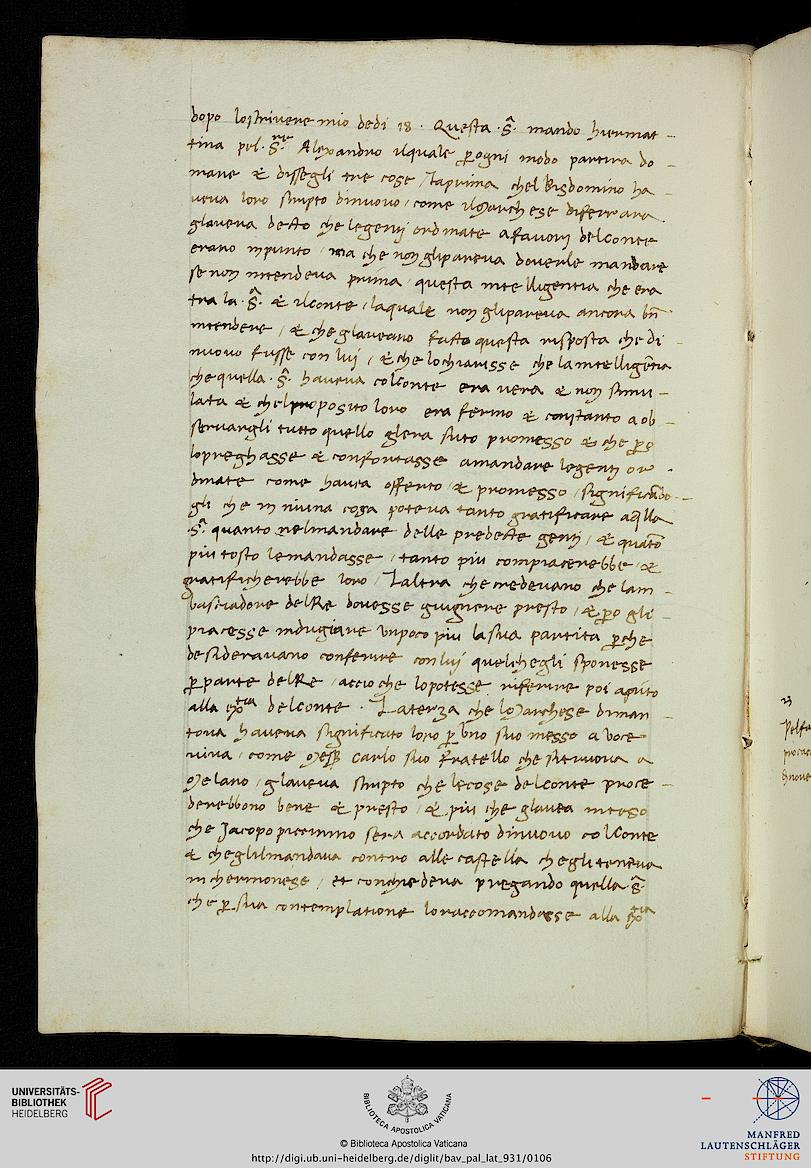 dopo loscrivere mio dedi 18 · Questa ·S. mando hiermat-
tina pel ·S.re Alexandro ilquale p ogni modo partira do-
mane & dissegli tre cose / Laprima chel Visdomino ha-
veva loro scripto dinuovo / come ilMarchese diferrara
glaveva decto che legenti ordinate afavori delconte
erano inpunto / ma che non glipareva doverle mandare
se non intendeva prima / questa intelligentia che era
tra la ·S. & ilconte / laquale non glipareva ancora bñ
intendere / & che glaveano facto questa risposta che di-
nuovo fusse con lui / & che lochiarisse che laintelligẽtia
che quella ·S. haveva colconte era vera & non simu-
lata & chelproposito loro era fermo & constanto a ob-
servargli tutto quello glera suto promesso & che po
lopreghasse & confortasse amandare legenti or-
dinate come havea offerto / & promesso / significãdo-
gli che in niuna cosa poteva tanto gratificare aqlla
·S. quanto nelmandare delle predecte genti / & quãto
piu tosto lemandasse / tanto piu compiacerebbe / &
gratificherebbe loro / Laltra che credevano che lam-
basciadore delRe dovesse giugnere presto / & po gli
piacesse indugiare unpoco piu lasua partita pche
desideravano conferire con lui quelchegli sponesse
p parte delRe / accio che lopotesse riferire poi apũto
alla extia delconte · Laterza che loMarchese diman-
tova haveva significato loro p uno suo messo a voce
viva / come Mess Carlo suo fratello che sitruova a
Melano / glaveva scripto che lecose delconte proce-
derebbono bene & presto / & piu che glavea inteso
che Jacopo piccinino sera accordato dinuovo colConte
& cheglilmandava contro alle castella chegli teneva
in chermonese / et conchiedeva pregando quella ·S.
che p sua contemplatione loraccomandasse alla extia
23
UNIVERSITÄTS-
BIBLIOTHEK
HEIDELBERG
BIBLIOTHECA APOSTOLICA VATICANA
© Biblioteca Apostolica Vaticana
http://digi.ub.uni-heidelberg.de/diglit/bav_pal_lat_931/0106
MANFRED
LAUTENSCHLÄGER
STIFTUNG